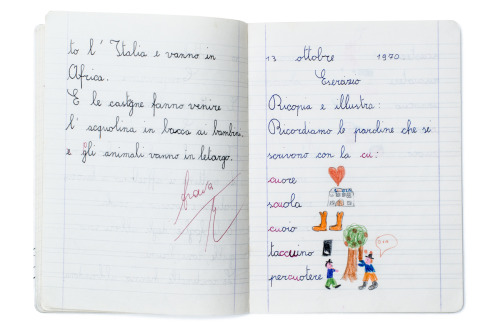 to l' Italia e vanno in
Africa.
E le castgne fanno venire
l' acquolina in bocca ai bambini
e gli animali vanno in letargo.
brava
13 ottobre 1970
Esercizio
Ricopia e illustra:
Ricordiamo le paroline che si
scrivono con la cu:
cuore
scuola
cuoio
taccuino
percuotere